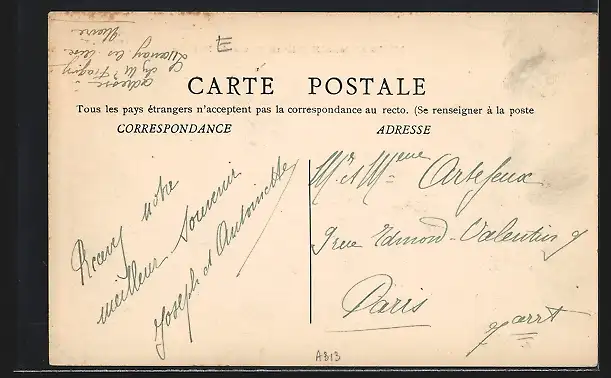 adresse
E
CARTE POSTALE
Tous les pays étrangers n'acceptent pas la correspondance au recto. (Se renseigner à la poste
CORRESPONDANCE
ADRESSE
notre
meilleur Souvenir
Joseph et Antoinette
Mr et Mme Artefeux
9 rue Edmond-Valentin 7
Paris
7 arrt
A313